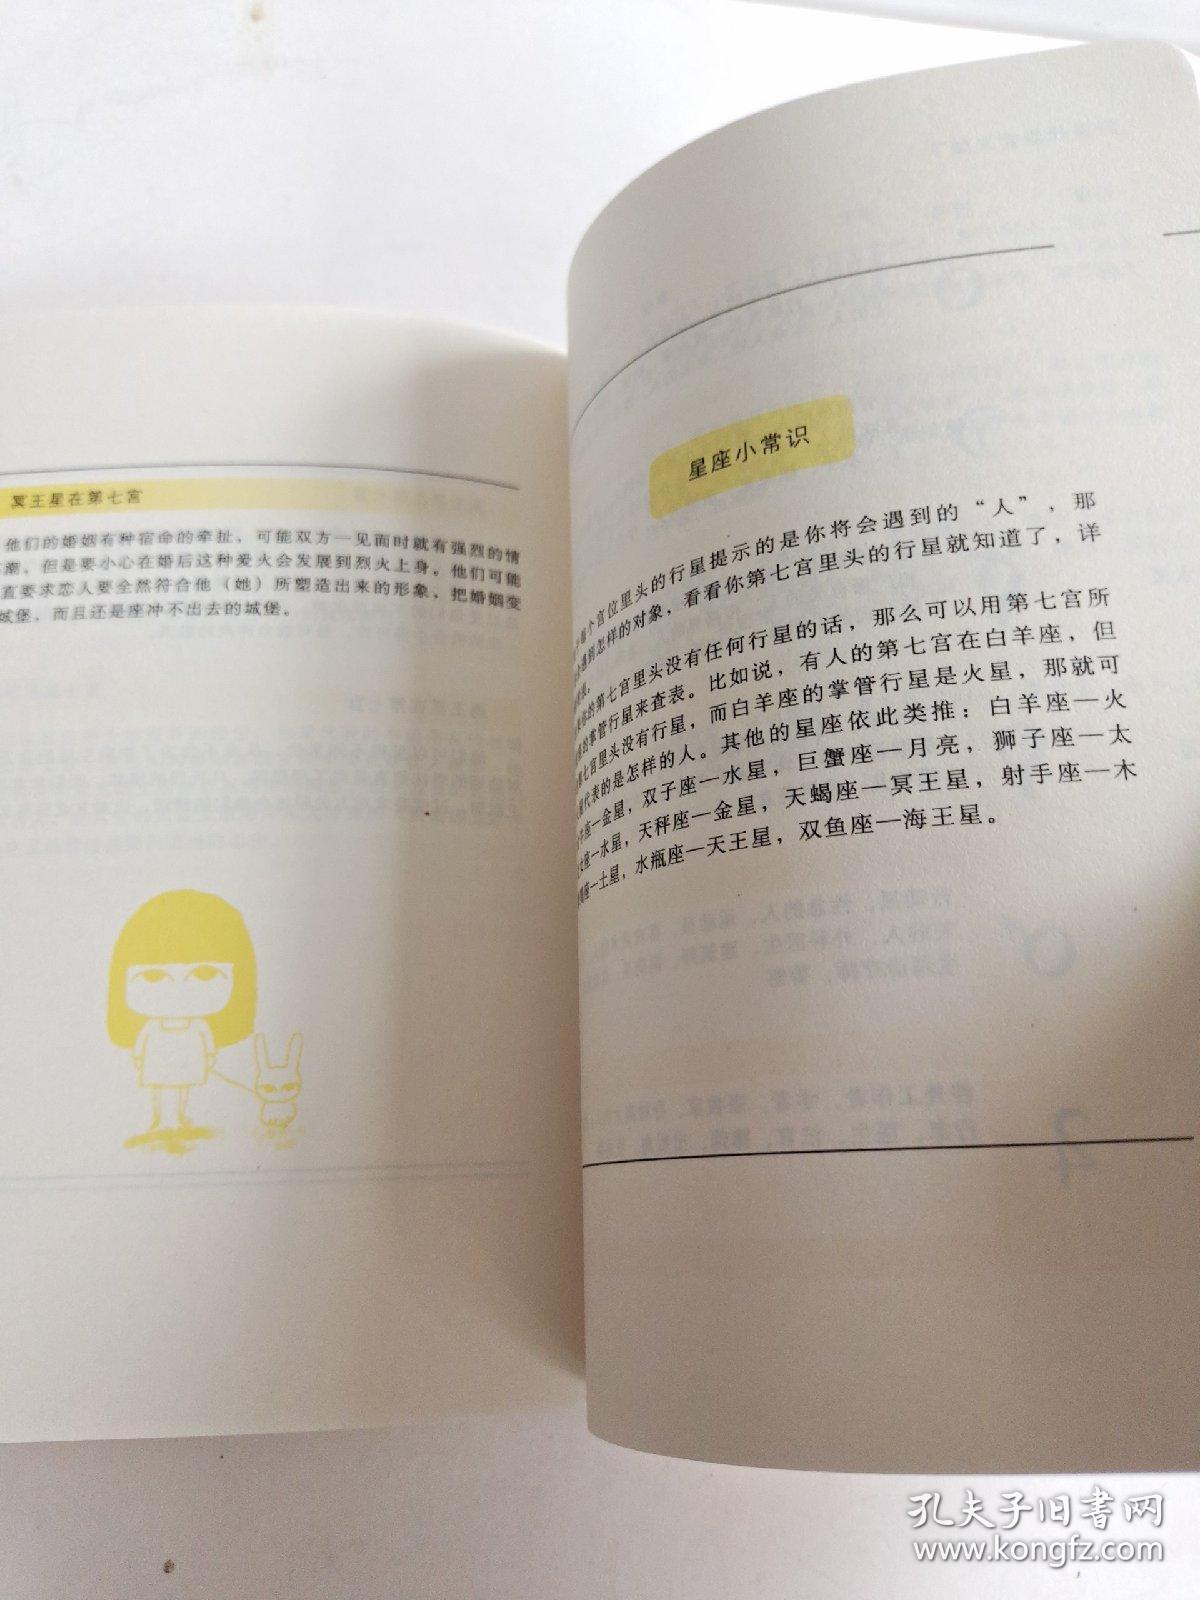 冥王星在第七宫
他们的婚姻有种宿命的牵扯，可能双方一见面时就有强烈的情
潮，但是要小心在婚后这种爱火会发展到烈火上身。他们可能
直要求恋人要全然符合他（她）所塑造出来的形象，把婚姻变
城堡，而且还是座冲不出去的城堡。
星座小常识
个宫位里头的行星提示的是你将会遇到的“人”，那
遇到怎样的对象，看看你第七宫里头的行星就知道了，详
表。
的第七宫里头没有任何行星的话，那么可以用第七宫所
的掌管行星来查表。比如说，有人的第七宫在白羊座，但
七宫里头没有行星，而白羊座的掌管行星是火星，那就可
代表的是怎样的人。其他的星座依此类推：白羊座—火
座—金星，双子座—水星，巨蟹座—月亮，狮子座—太
座—水星，天秤座—金星，天蝎座—冥王星，射手座—木
座—土星，水瓶座—天王星，双鱼座—海王星。
孔夫子旧书网
www.kongfz.com